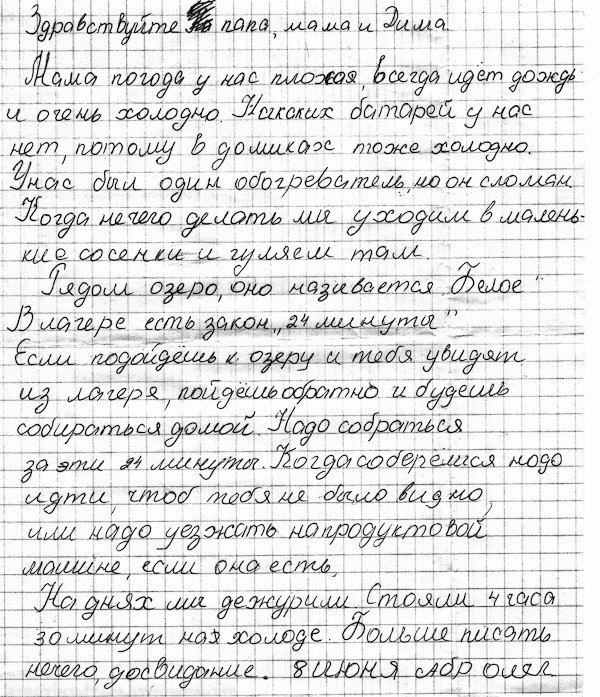 Здравствуйте папа, мама и Дима.
Мама погода у нас плохая, всегда идёт дождь
и очень холодно. Никаких батарей у нас
нет, потому в домиках тоже холодно.
У нас был один обогреватель, но он сломан.
Когда нечего делать мы уходим в малень-
кие сосенки и гуляем там.
Рядом озеро, оно називается „Белое"
В лагере есть закон „24 минуты"
Если подойдёшь к озеру и тебя увидят
из лагеря, пойдёшь обратно и будешь
собираться домой. Надо собраться
за эти 24 минуты. Когда соберёшся надо
идти, чтоб тебя не было видно,
или надо уезжать на продуктовой
машине, если она есть,
На днях ми дежурили Стояли 4 часа
30 минут на холоде. Больше писать
нечего, досвидание. 8 июня